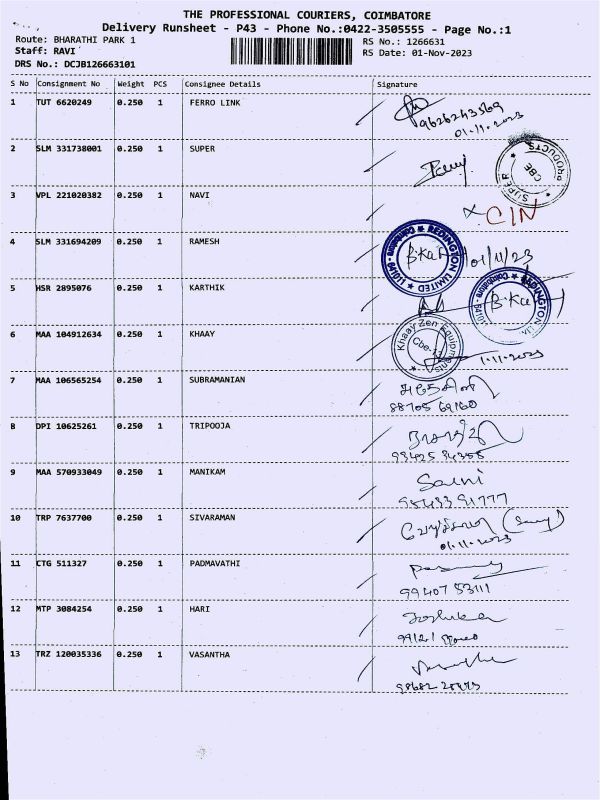 THE PROFESSIONAL COURIERS, COIMBATORE
Delivery Runsheet - P43 - Phone No.:0422-3505555 - Page No.:1
Route: BHARATHI PARK 1
RS No.: 1266631
Staff: RAVI
RS Date: 01-Nov-2023
DRS No.: DCJB126663101
S No Consignment No Weight PCS Consignee Details Signature
1 TUT 6620249 0.250 1 FERRO LINK
9626243569
01.11.2023
2 SLM 331738001 0.250 1 SUPER
SUPER PRODUCTS CBE
3 VPL 221020382 0.250 1 NAVI
CIN
4 SLM 331694209 0.250 1 RAMESH
REDINGTON LIMITED Coimbatore
01/11/23
5 HSR 2895076 0.250 1 KARTHIK
6 MAA 104912634 0.250 1 KHAAY
Khaay Zen Equipments
1.11.2023
7 MAA 106565254 0.250 1 SUBRAMANIAN
88705 69160
8 DPI 10625261 0.250 1 TRIPOOJA
8 MAA 570933049 0.250 1 MANIKAM
95433 91777
10 TRP 7637700 0.250 1 SIVARAMAN
01.11.2023
11 CTG 511327 0.250 1 PADMAVATHI
99407 53111
12 MTP 3084254 0.250 1 HARI
13 TRZ 120035336 0.250 1 VASANTHA